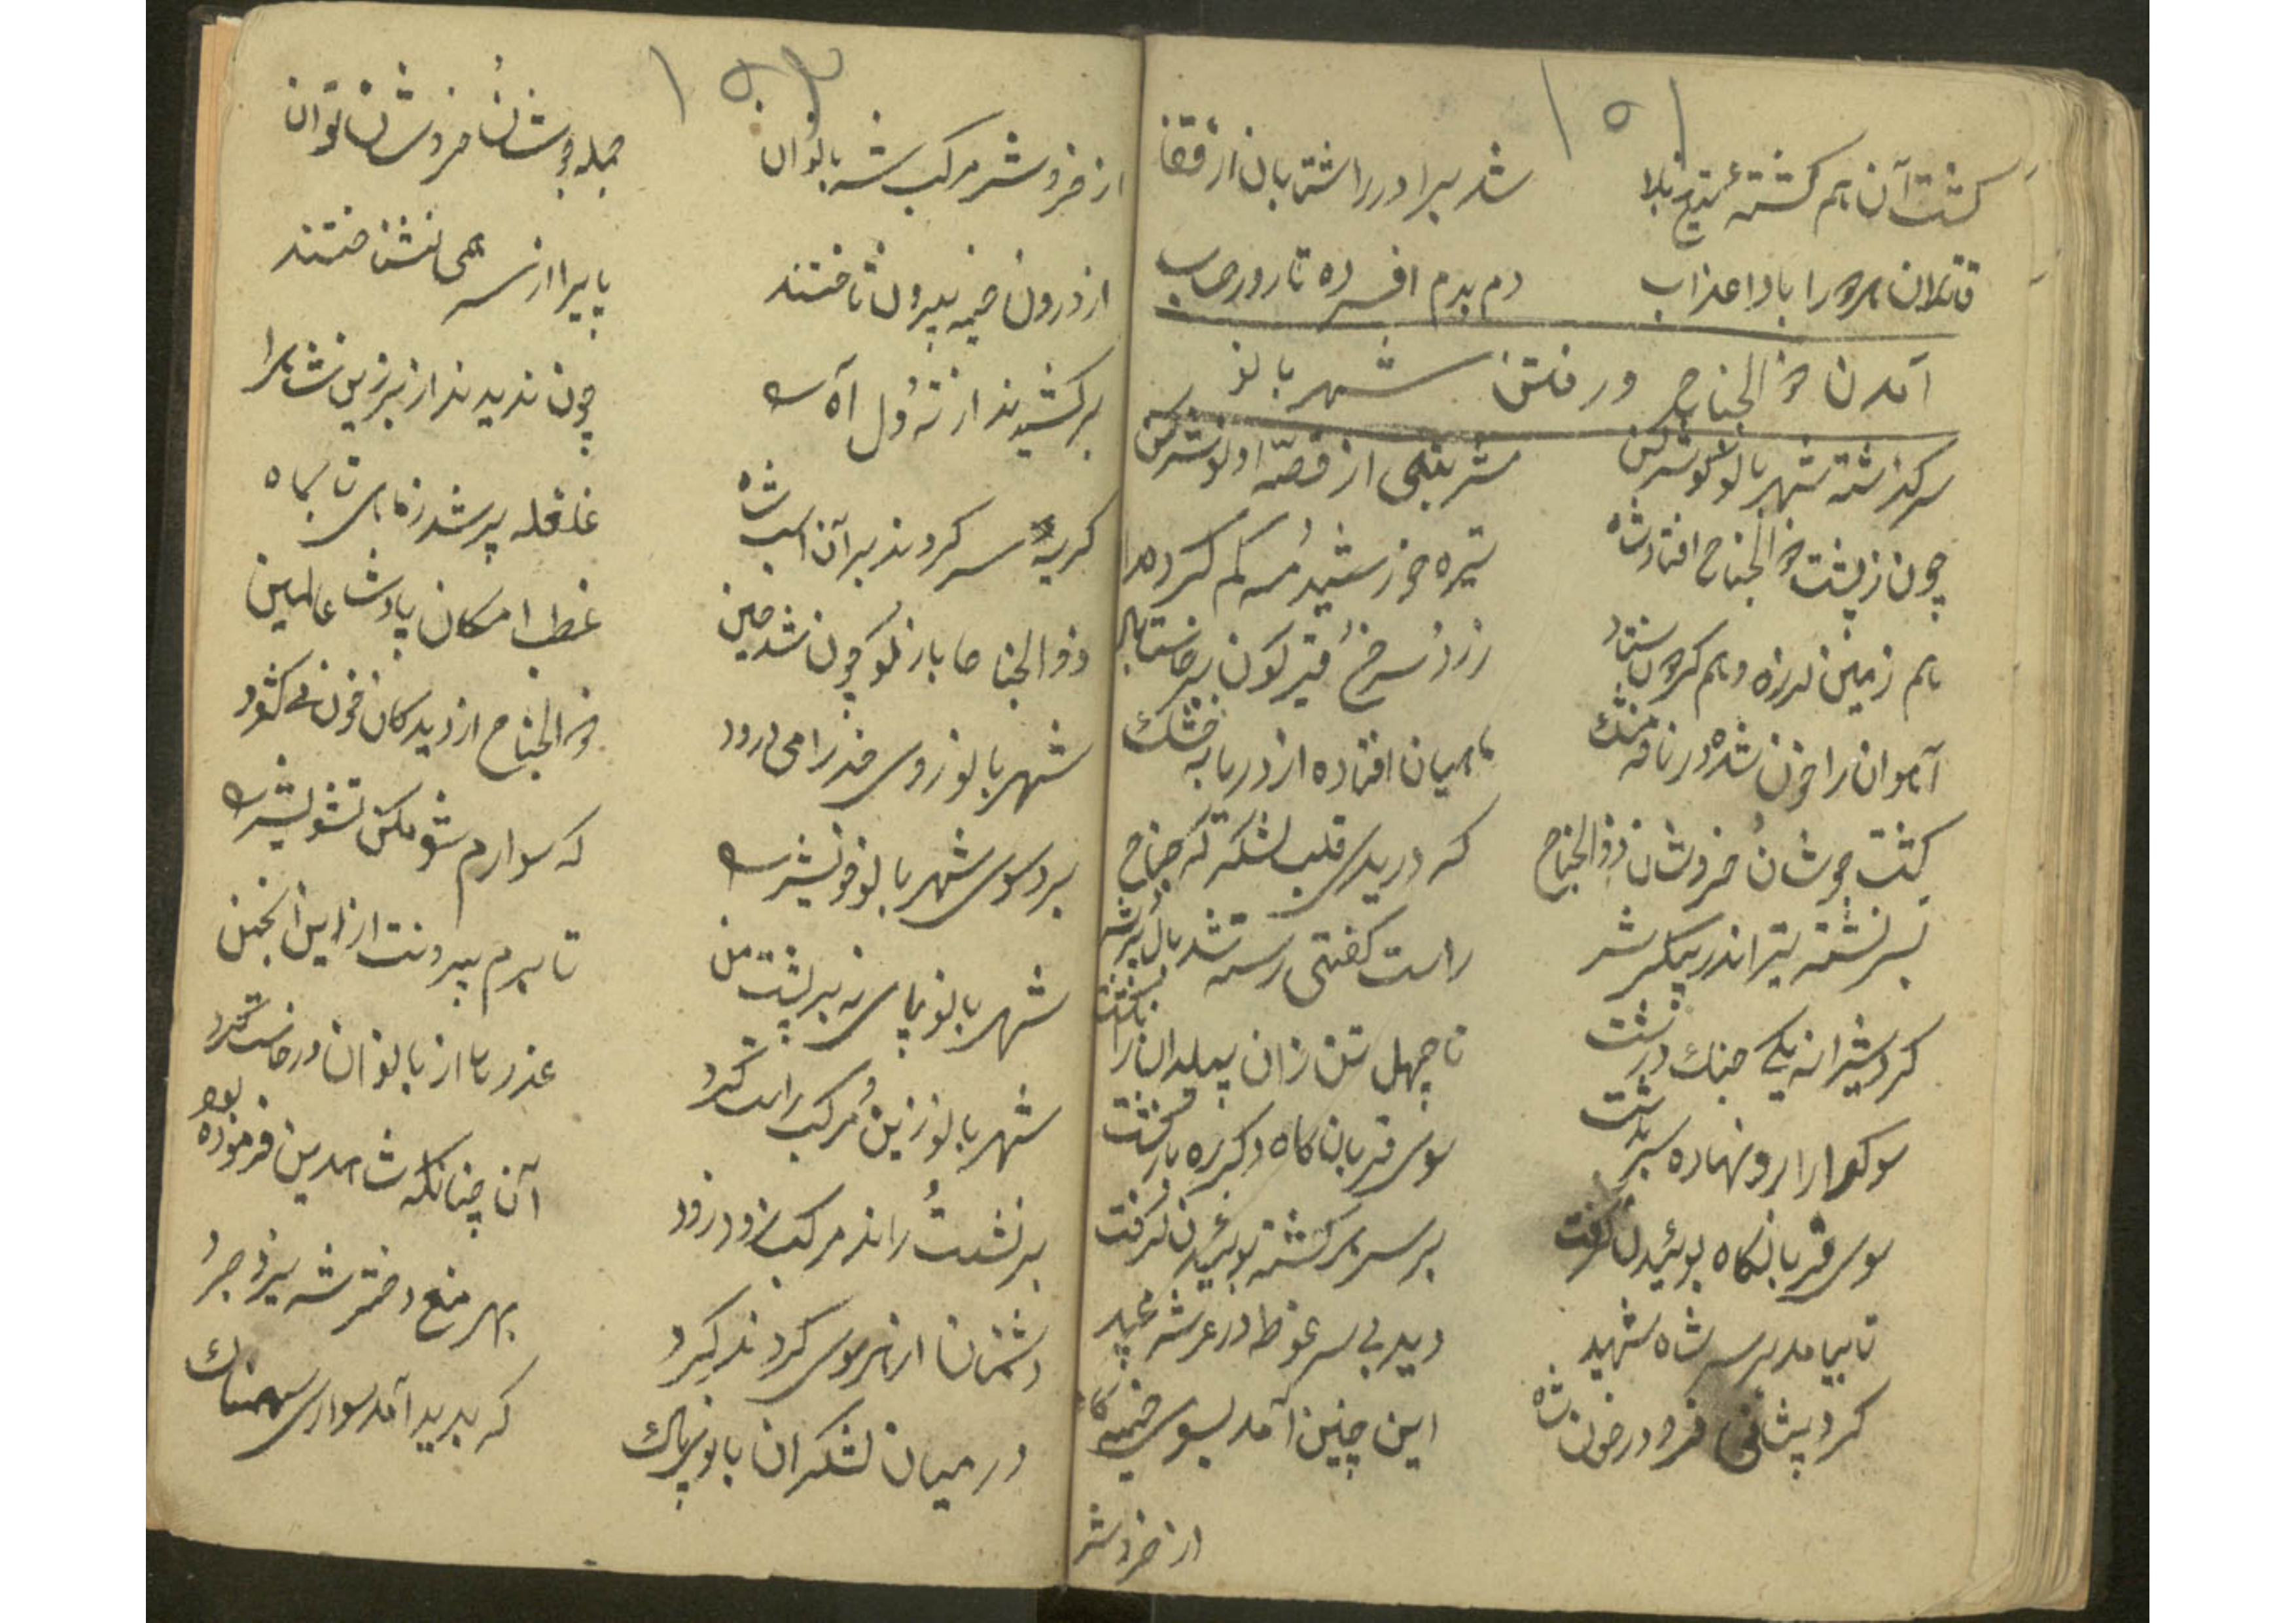 ١٥١
كشت آن هم كشته تیغ بلا شد برادر را شتابان از قفا
قاتلان هر را بادا عذاب دم بدم افسرده تا روز حساب
آمدن ذو الجناح و رفتن شهربانو
سر كذشته شهربانو كوش كن شربتی از قصّه او نوش كن
چون ز پشت ذو الجناح افتاد شاه تیره خورشید مه كم كرد
هم زمین لرزه و هم كردون ستاد زرد سرخ قیركون برخاست باد
آهوان را خون شده در نافه مشك ماهیان افتاده از دریا به خشك
كشت جوشان خروشان ذو الجناح كه دریدی قلب لشكر كه جناح
بسر نشسته تیر اندر پیكرش راست كفتی رسته شد بال پرش
كرد شیرانه یكی جنك درشت تا چهل تن زان پلیدان را بكشت
سوكوارا رو نهاده سر بدشت سوی قربان كاه دكر ره باز كشت
سوی قربانكاه بوئیدن كرفت بر سر هر كشته بوئیدن كرفت
تا بیامد بر سر شاه شهید دید بی سر غوطه در عرشه مجید
كرد پیشانی فرو در خون شاه این چنین آمد بسوی خیمه كاه
از خروش
١٥٢
از خروش مركب شه بانوان جمله جوشان خروشان نوان
از درون خیمه بیرون تاختند پا برا از سر همی نشناختند
بر كشیدند از ته دل آه چون ندیدند از بر زین شاه را
كریه سر كردند بر آن اسب شاه غلغله پر شد ز ماهی تا بماه
ذو الجناحا باز كو چون شد حسین غطب امكان پادشاه عالمین
شهربانو زوی خذرا می درود ذو الجناح از دیدكان خون می كشود
برد سوی شهربانو خویش را كه سوارم شو مكن تشویش را
شهربانو پای نه بر پشت من تا برم بیرونت از این انجمن
شهربانو زین مركب راست كرد عذرها از بانوان درخاست كرد
بر نشست راند مركب زود زود آن چنانكه شاه دین فرموده بود
دشمنان از هر سوی كردند كرد بهر منع دختر شه یزد جرد
در میان لشكران بانوی پاك كه بدید آمد سواری سهمناك